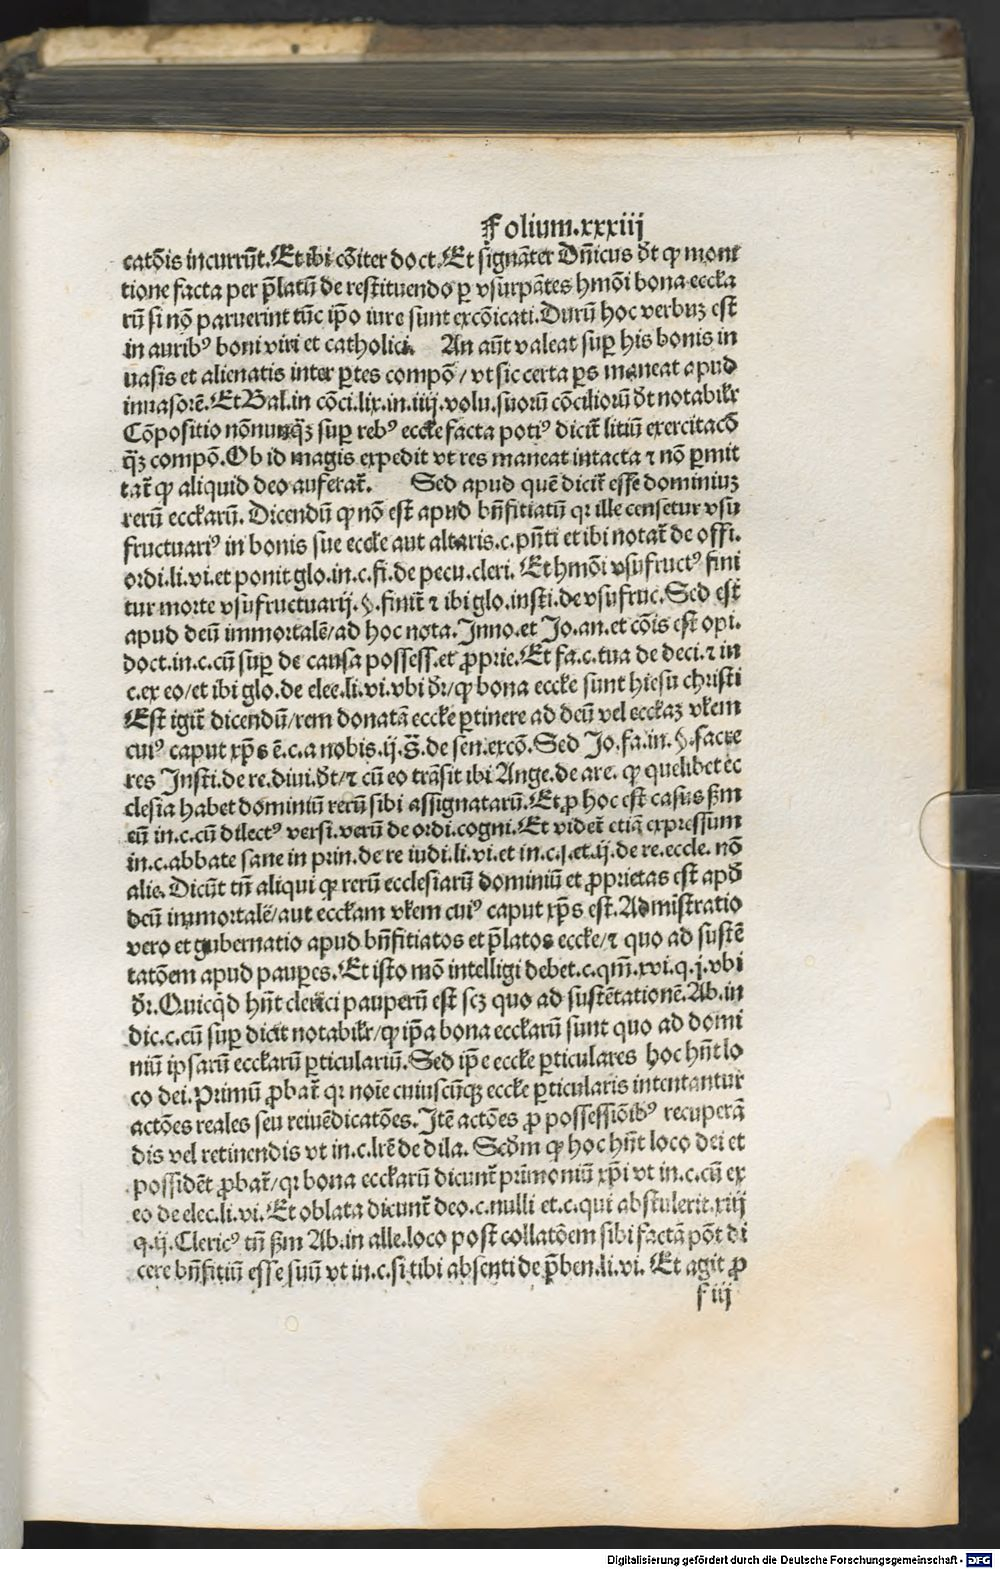 Folium.xxxiij
catōis incurrūt. Et ibi cōiter doct. Et signāter Dn̄icus dt̄ ꝙ moni
tione facta per p̄latū de restituendo ꝑ vsurpātes hmōi bona eccƚa
rū si nō paruerint tūc ip̄o iure sunt excōicati. Durū hoc verbuꝫ est
in auribꝰ boni viri et catholici. An aūt valeat suꝑ his bonis in
uasis et alienatis inter ꝑtes compō / vt sic certa ꝑs maneat apud
inuasorē. Et Bal. in cōci. lix. in. iiij. volu. suorū cōciliorū dt̄ notabiƚr
Cōpositio nōnunq̄ꝫ suꝑ rebꝰ eccƚe facta potiꝰ dicit̄ litiū exercitacō
q̄ꝫ compō. Ob id magis expedit vt res maneat intacta ⁊ nō ꝑmit
tat̄ ꝙ aliquid deo auferat̄. Sed apud quē dicit̄ esse dominiuꝫ
rerū eccƚarū. Dicendū ꝙ nō est apud bn̄fitiatū qꝛ ille censetur vsu
fructuariꝰ in bonis sue eccƚe aut altaris. c. pn̄ti et ibi notat̄ de offi.
ordi. li. vi. et ponit glo. in. c. fi. de pecu. cleri. Et hmōi vsufructꝰ fini
tur morte vsufructuarij. §. finit̄ ⁊ ibi glo. insti. de vsufruc. Sed est
apud deū immortalē / ad hoc nota. Inno. et Jo. an. et cōis est opi.
doct. in. c. cū suꝑ de causa possess. et ꝓprie. Et fa. c. tua de deci. ⁊ in
c. ex eo / et ibi glo. de elec. li. vi. vbi dr̄ / ꝙ bona eccƚe sunt hiesu christi
Est igit̄ dicendū / rem donatā eccƚe ꝑtinere ad deū vel eccƚaꝫ vƚem
cuiꝰ caput xp̄s ē. c. a nobis. ij. §. de sen. excō. Sed Jo. fa. in. §. facte
res Insti. de re. diui. dt̄ / ⁊ cū eo trāsit ibi Ange. de are. ꝙ quelibet ec
clesia habet dominiū rerū sibi assignatarū. Et ꝓ hoc est casus ẜm
eū in. c. cū dilectꝰ versi. verū de ordi. cogni. Et videt̄ etiā expressum
in. c. abbate sane in prin. de re iudi. li. vi. et in. c. j. et. ij. de re. eccle. nō
alie. Dicūt tn̄ aliqui ꝙ rerū ecclesiarū dominiū et ꝓprietas est apd̄
deū immortalē / aut eccƚam vƚem cuiꝰ caput xp̄s est. Admīstratio
vero et gubernatio apud bn̄fitiatos et p̄latos eccƚe / ⁊ quo ad sustē
tatōem apud pauꝑes. Et isto mō intelligi debet. c. qm̄. xvi. q. j. vbi
dr̄. Quicq̄d hn̄t clerici pauperū est scꝫ quo ad sustētationē. Ab. in
dic. c. cū suꝑ dicit notabiƚr / ꝙ ip̄a bona eccƚarū sunt quo ad domi
niū ipsarū eccƚarū ꝑticulariū. Sed ip̄e eccƚe ꝑticulares hoc hn̄t lo
co dei. Primū ꝓbat̄ qꝛ noīe cuiuscūqꝫ eccƚe ꝑticularis intentantur
actōes reales seu reiuēdicatōes. Itē actōes ꝓ possessiōibꝰ recuperā
dis vel retinendis vt in. c. lr̄e de dila. Scd̄m ꝙ hoc hn̄t loco dei et
possidēt ꝓbat̄ / qꝛ bona eccƚarū dicunt̄ pr̄imoniū xp̄i vt in. c. cū ex
eo de elec. li. vi. Et oblata dicunt̄ deo. c. nulli et. c. qui abstulerit. xiij
q. ij. Clericꝰ tn̄ ẜm Ab. in alle. loco post collatōem sibi factā pōt di
cere bn̄fitiū esse suū vt in. c. si tibi absenti de p̄ben. li. vi. Et agit ꝓ
f iij
Digitalisierung gefördert durch die Deutsche Forschungsgemeinschaft - DFG